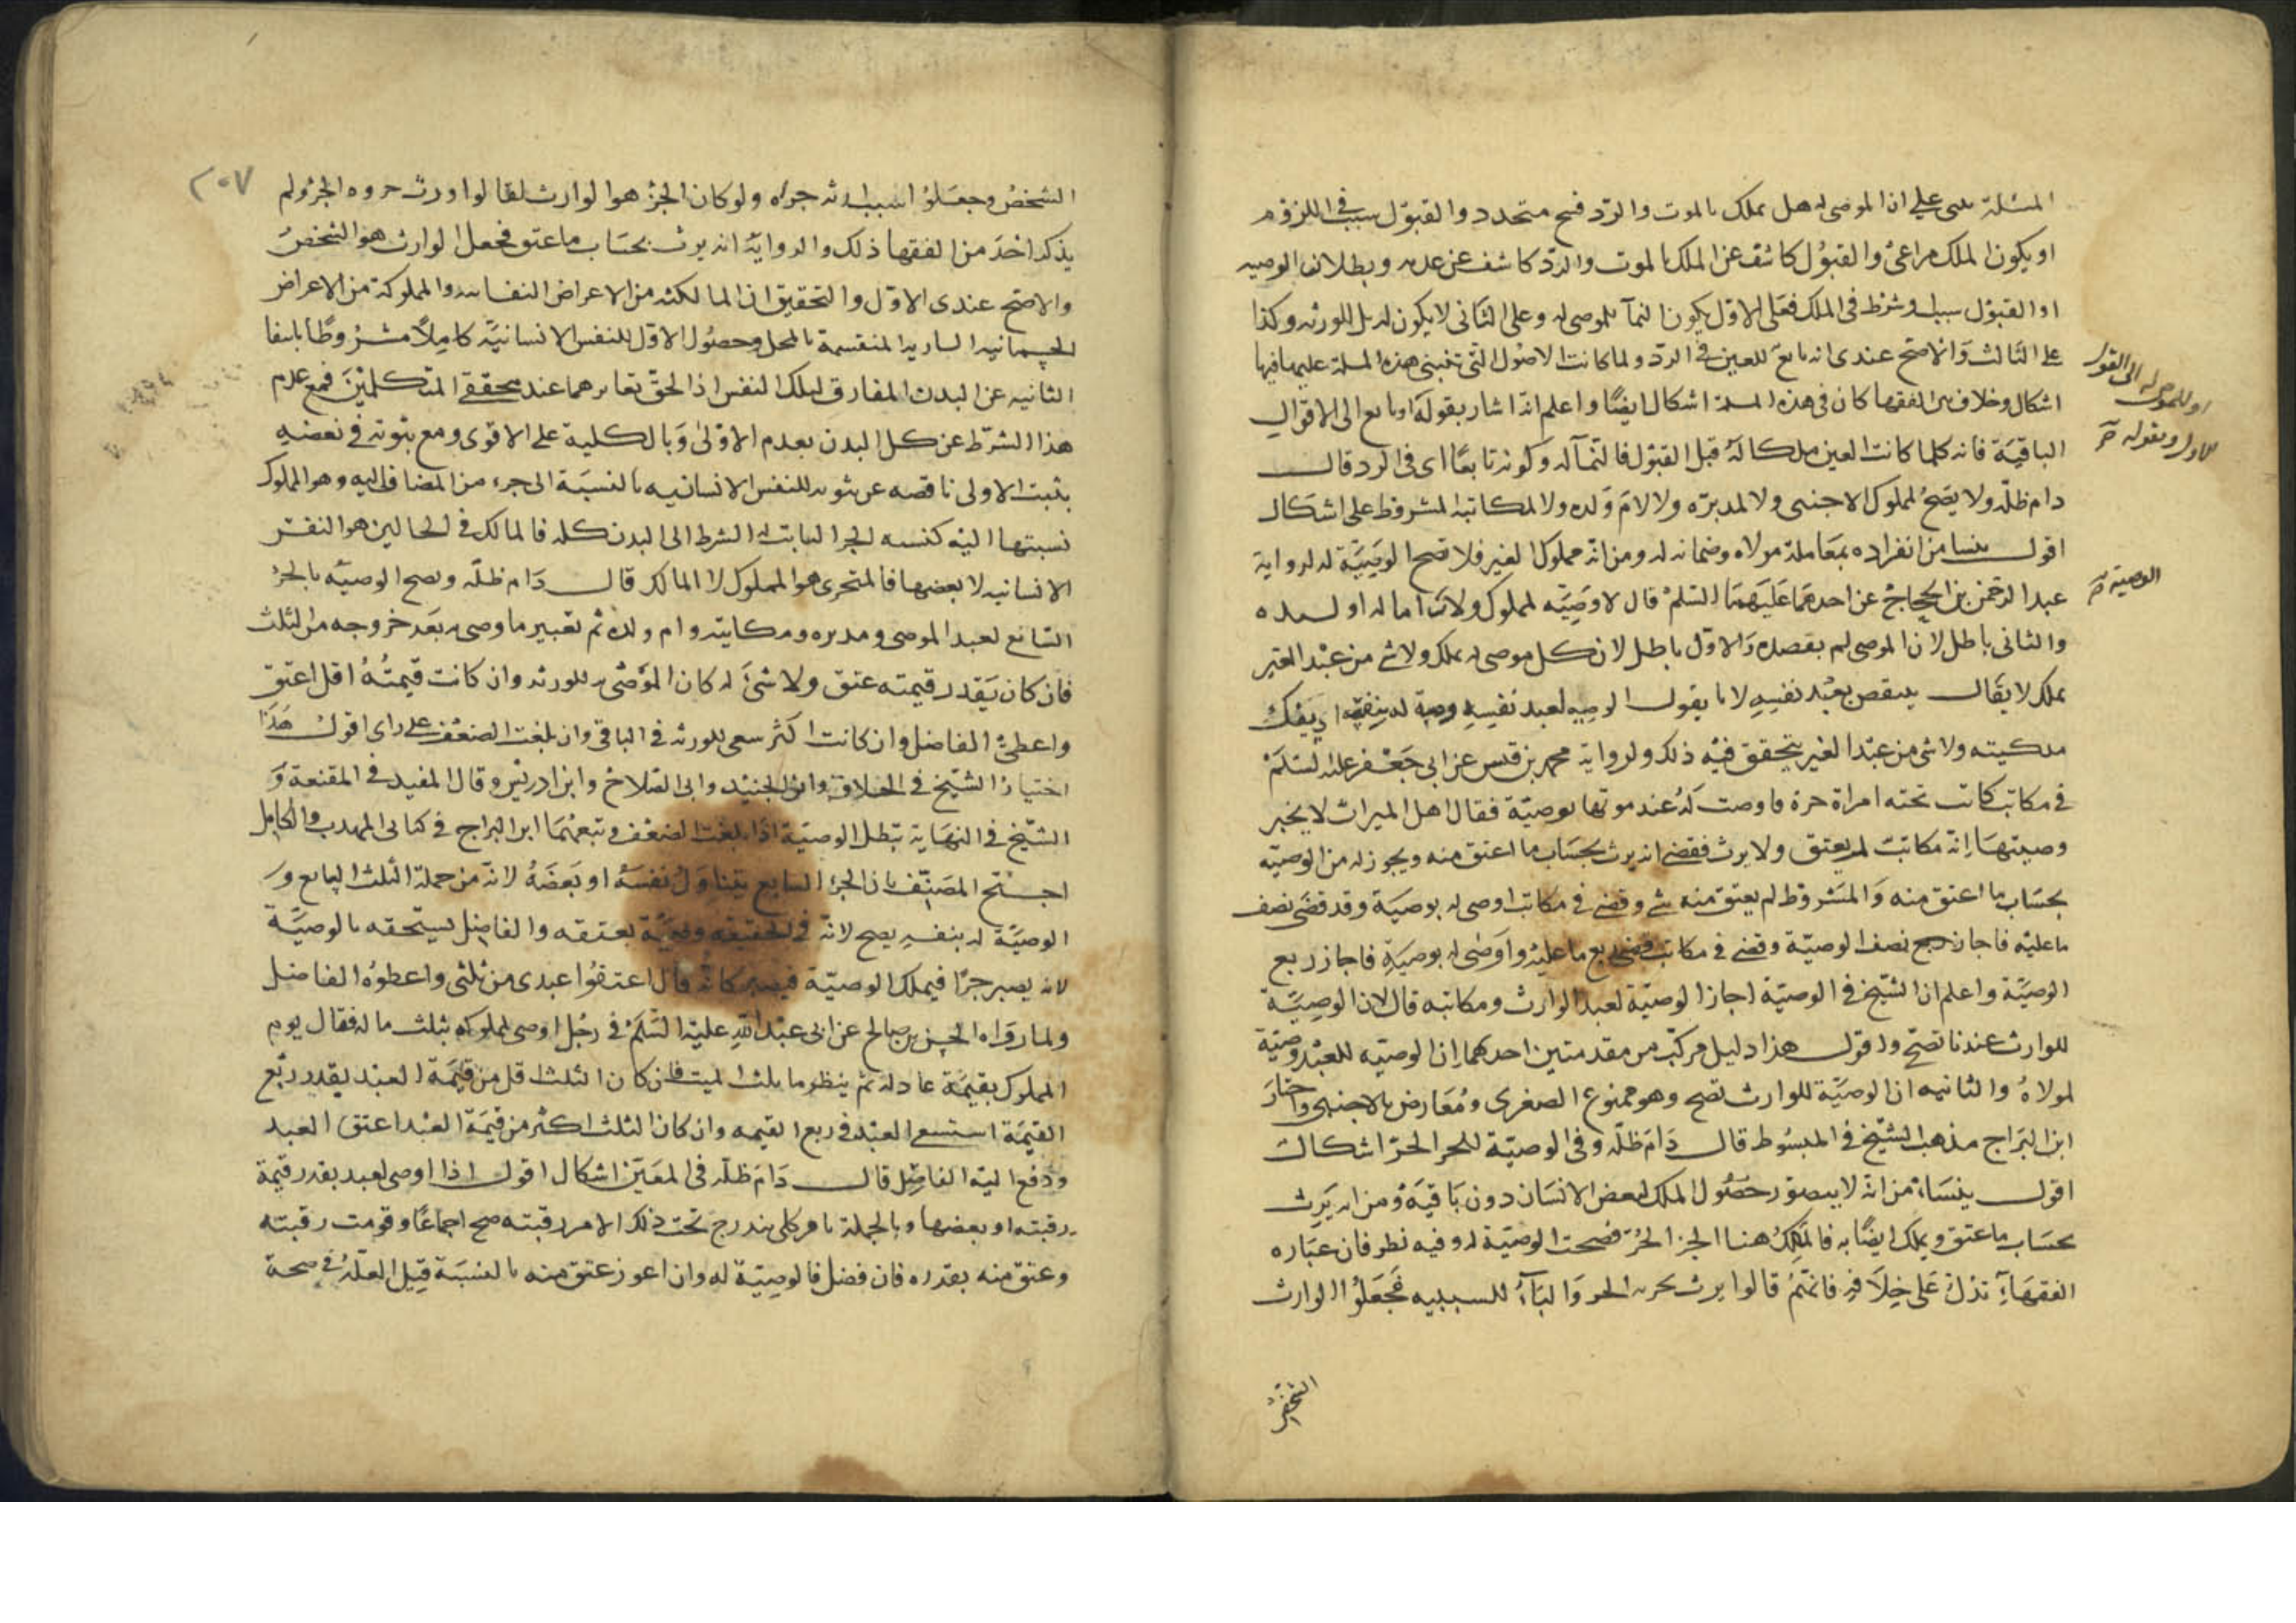 المسئلة مبنى على ان الموصى له هل يملك بالموت والرد فسخ متجدد والقبول سبب فى اللزوم
او يكون الملك مراعى والقبول كاشف عن الملك بالموت والرد كاشف عن عدمه وبطلان الوصيه
او القبول سبب او شرط فى الملك فعلى الاول يكون النمآ للموصى له وعلى الثانى لا يكون له بل للورثه وكذا
على الثالث والاصح عندى انه تابع للعين فى الرد ولما كانت الاصول التى تبتنى هذه المسلة عليها فيها
اشكال وخلاف بين الفقها كان فى هذه المسلة اشكال ايضًا واعلم انه اشار بقوله او تابع الى الاقوال
الباقية فانه كلما كانت العين ملكا له قبل القبول فالنمآ له وكونه تابعًا اى فى الرد قال
دام ظله ولا يصح لمملوك الاجنبى ولا لمدبره ولا لام ولده ولا لمكاتبه المشروط على اشكال
اقول ينشا من انفراده بمعاملة مولاه وضمانه له ومن انه مملوك الغير فلا تصح الوصية له لرواية
عبد الرحمن بن الحجاج عن احدهما عليهما السلم قال لا وصيه لمملوك ولانه اما له او لسيده
والثانى باطل لان الموصى لم يقصده والاول باطل لان كل موصى له يملك ولا شى من عبد الغير
يملك لا يقال ينتقض بعبد نفسه لانا نقول الوصيه لعبد نفسه وصية له بنفسه اى بفك
ملكيته ولا شى من عبد الغير يتحقق فيه ذلك ولرواية محمد بن قيس عن ابى جعفر عليه السلم
فى مكاتب كانت تحته امراة حرة فاوصت له عند موتها بوصية فقال اهل الميراث لا يجيز
وصيتها انه مكاتب لم يعتق ولا يرث فقضى انه يرث بحساب ما اعتق منه ويجوز له من الوصيه
بحساب ما اعتق منه والمشروط لم يعتق منه شى وقضى فى مكاتب اوصى له بوصية وقد قضى نصف
ما عليه فاجاز نصف الوصية وقضى فى مكاتب قضى ربع ما عليه واوصى له بوصية فاجاز ربع
الوصية واعلم ان الشيخ فى الوصية اجاز الوصية لعبد الوارث ومكاتبه قال لان الوصية
للوارث عندنا تصح واقول هذا دليل مركب من مقدمتين احدهما ان الوصيه للعبد وصية
لمولاه والثانيه ان الوصية للوارث تصح وهو ممنوع الصغرى ومعارض بالاجنبى واختار
ابن البراج مذهب الشيخ فى المبسوط قال دام ظله وفى الوصية للجزء الحر اشكال
اقول ينشاء من انه لا يتصور حصول الملك لبعض الانسان دون باقيه ومن انه يرث
بحساب ما عتق ويملك ايضًا به فالمالك هنا الجزء الحر فصحت الوصية له وفيه نظر فان عباره
الفقهآء تدل على خلافه فانهم قالوا يرث بجزئه الحر والبآء للسببيه فجعلوا الوارث
الشخص
او للموصى له الى القول
الاول وبقوله صح
الوصية صح
٢٠٧
الشخص وجعلوا سبب ارثه جزاه ولو كان الجزء هو الوارث لقالوا ورث جزوه الحر ولم
يذكر احد من الفقها ذلك والرواية انه يرث بحساب ما عتق فجعل الوارث هو الشخص
والاصح عندى الاول والتحقيق ان المالكيه من الاعراض النفسانيه والمملوكية من الاعراض
الجسمانيه الساريه المنقسمة بالمحل وحصول الاول للنفس الانسانية كاملًا مشروطًا بانتفا
الثانيه عن البدن المفارق لملك النفس اذ الحق تغايرهما عند محققى المتكلمين فمع عدم
هذا الشرط عن كل البدن يعدم الاولى وبالكلية على الاقوى ومع ثبوته فى بعضه
يثبت الاولى ناقصه عن ثبوته للنفس الانسانيه بالنسبة الى جزء من المضاف اليه وهو المملوك
نسبتها اليه كنسبه الجزء الثابت له الشرط الى البدن كله فالمالك فى الحالين هو النفس
الانسانيه لا بعضها فالمتجزى هو المملوك لا المالك قال دام ظله وتصح الوصية بالجزء
الشائع لعبد الموصى ومدبره ومكاتبته وام ولده ثم تعتبر ما وصى به بعد خروجه من الثلث
فان كان بقدر قيمته عتق ولا شئ له كان الموصى به للورثه وان كانت قيمته اقل اعتق
واعطى الفاضل وان كانت اكثر سعى للورثه فى الباقى وان بلغت الضعف على راى اقول هذا
اختيار الشيخ فى الخلاف وابن الجنيد وابى الصلاح وابن ادريس وقال المفيد فى المقنعة و
الشيخ فى النهاية تبطل الوصية اذا بلغت الضعف وتبعهما ابن البراج فى كتابى المهذب والكامل
احتج المصنف بان الجزء الشايع يتناول نفسه او بعضه لانه من جملة الثلث الشايع و
الوصية له بنفسه يصح لانه فى الحقيقه وصية بعتقه والفاضل يستحقه بالوصية
لانه يصير حرًا فيملك الوصية فيصير كانه قال اعتقوا عبدى من ثلثى واعطوه الفاضل
ولما رواه الحسن بن صالح عن ابى عبد الله عليه السلم فى رجل اوصى لمملوكه بثلث ماله فقال يقوم
المملوك بقيمة عادله ثم ينظر ما ثلث الميت فان كان الثلث اقل من قيمة العبد بقدر ربع
القيمة استسعى العبد فى ربع القيمه وان كان الثلث اكثر من قيمة العبد اعتق العبد
ودفع اليه الفاضل قال دام ظله فى المعين اشكال اقول اذا اوصى لعبد بقدر قيمة
رقبته او بعضها وبالجملة بامر كلى يندرج تحت ذلك الامر رقبته صح اجماعًا وقومت رقبته
وعتق منه بقدره فان فضل فالوصية له وان اعوز عتق منه بالنسبة قيل العلة فى صحة